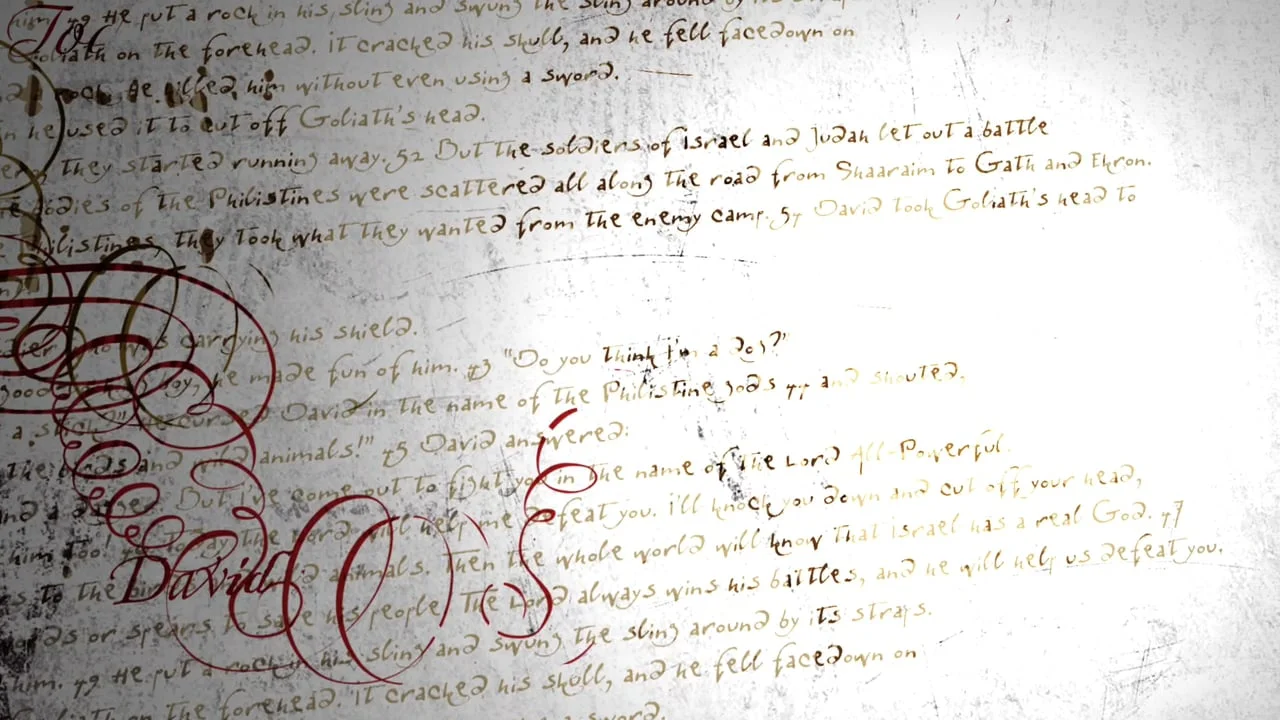 him. 49 He put a rock in his sling and swung the sling around by its straps.
Goliath on the forehead. It cracked his skull, and he fell facedown on
a rock. He killed him without even using a sword.
he used it to cut off Goliath's head.
they started running away. 52 But the soldiers of Israel and Judah let out a battle
bodies of the Philistines were scattered all along the road from Shaaraim to Gath and Ekron.
they took what they wanted from the enemy camp. 54 David took Goliath's head to
was carrying his shield.
boy, he made fun of him. 43 "Do you think I'm a dog?"
He cursed David in the name of the Philistine gods 44 and shouted,
the birds and wild animals!" 45 David answered:
But I've come out to fight you in the name of the Lord All-Powerful.
the Lord will help me defeat you. I'll knock you down and cut off your head,
animals. Then the whole world will know that Israel has a real God. 47
or spears to save his people. The Lord always wins his battles, and he will help us defeat you.
him. 49 He put a rock in his sling and swung the sling around by its straps.
Goliath on the forehead. It cracked his skull, and he fell facedown on
sword.
David